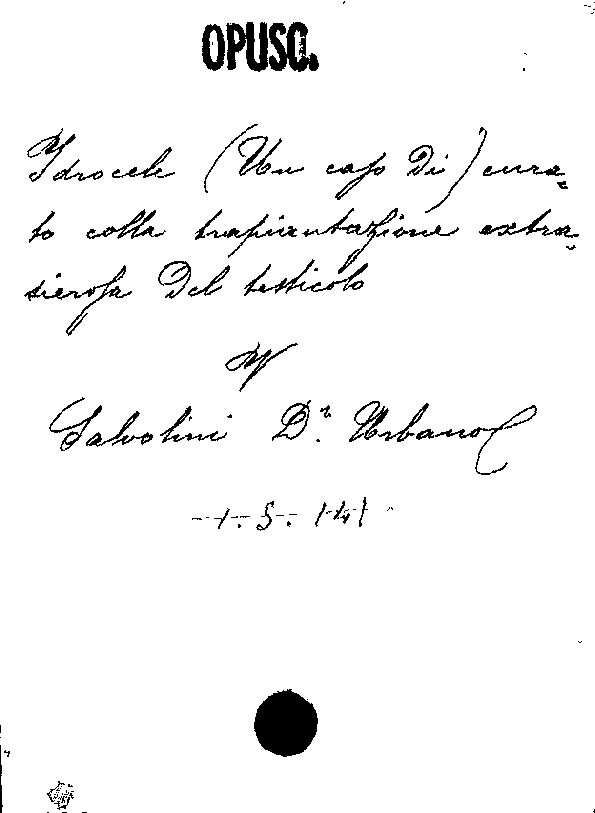 OPUSC.
Idrocele (Un caso Di) cura=
to colla trapiantazione extra=
sierosa Del testicolo
Salvolini D.r Urbano
1. 5. 141